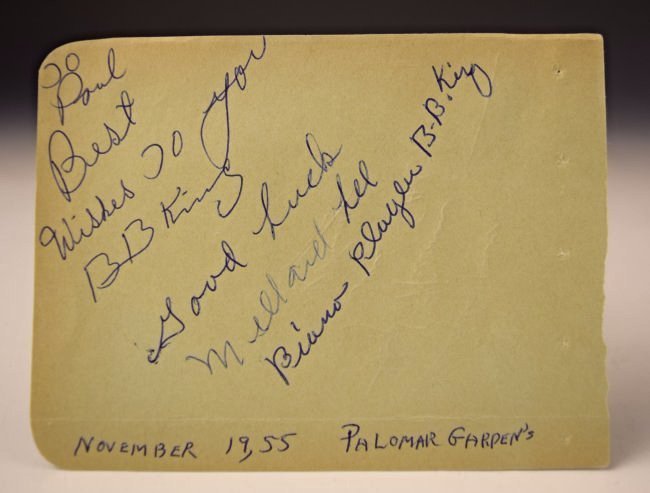 To Paul
Best
Wishes To you
BB King
Good luck
Millard Lee
Piano Player B.B. King
NOVEMBER 19,55 PALOMAR GARDEN's